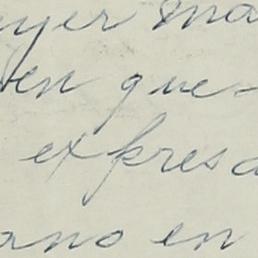 yer ma
en que
expresa
ano en